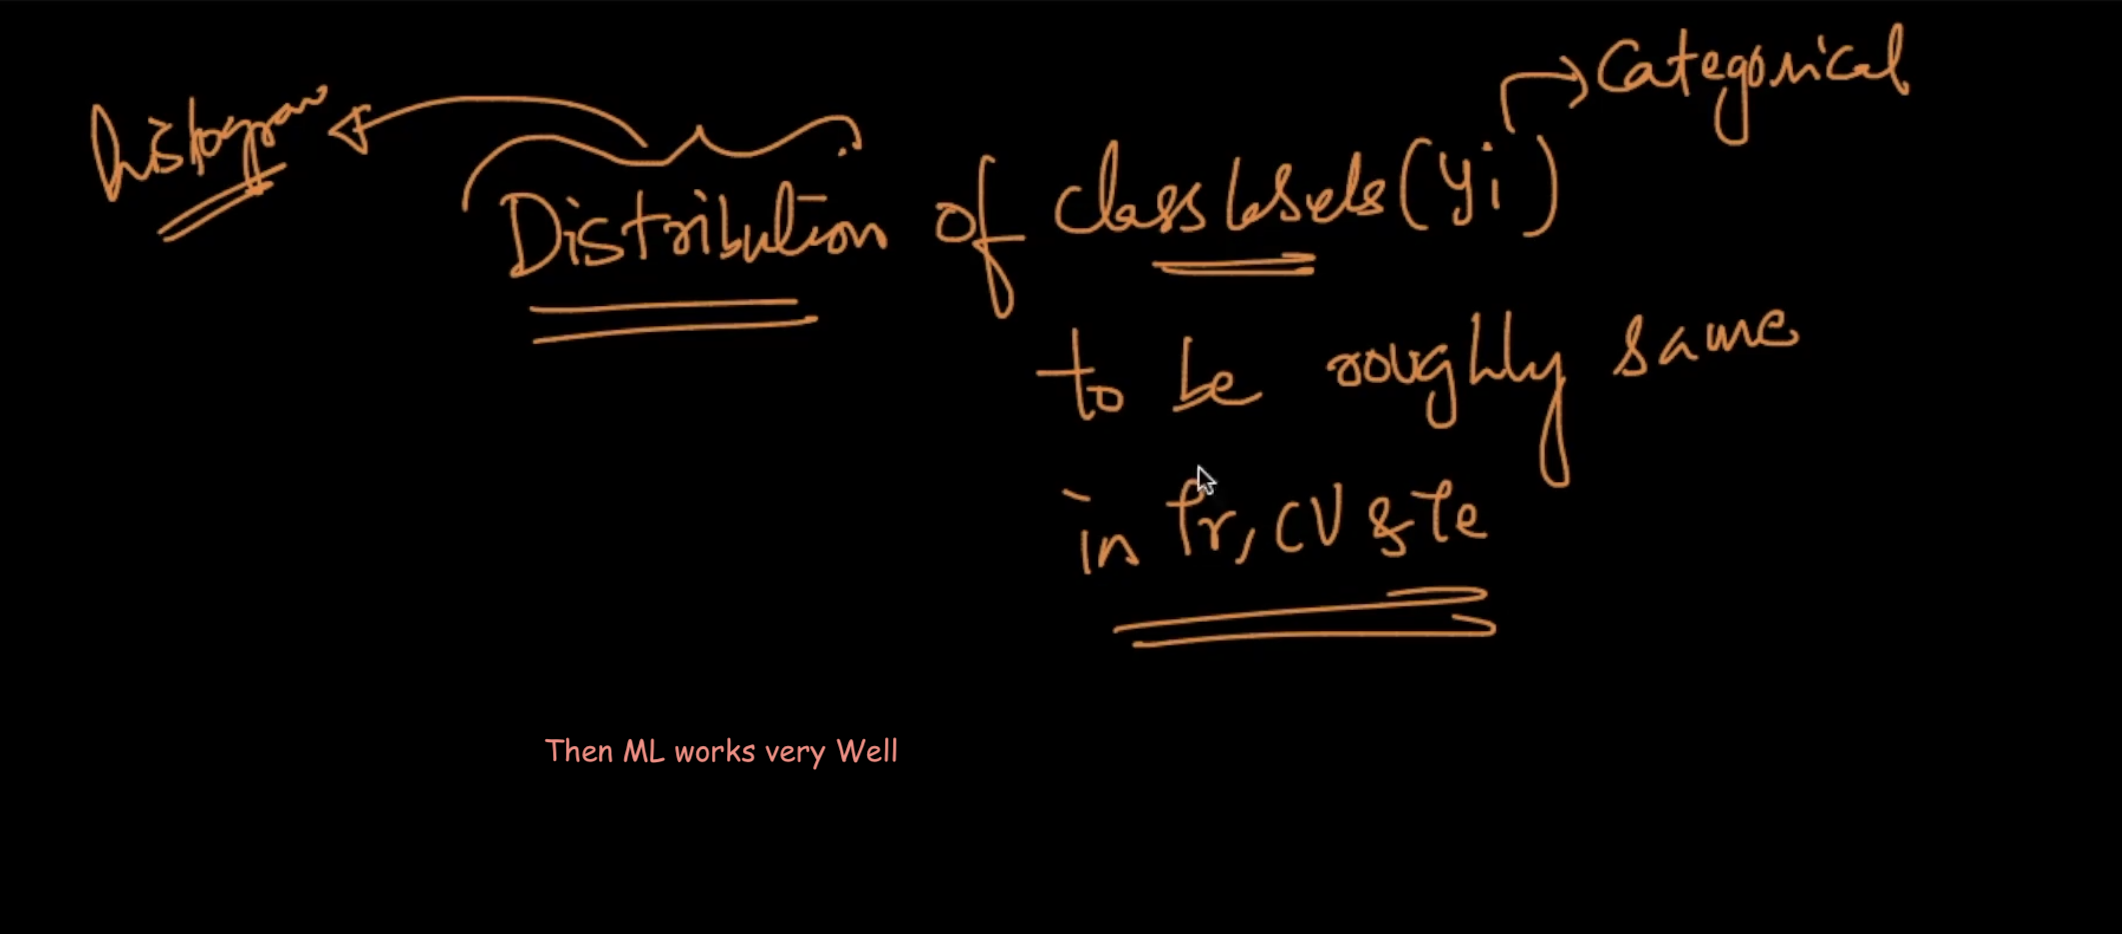 Categorical
histogram
Distribution of class labels (yi)
to be roughly same
in Tr, CV & Te
Then ML works very Well